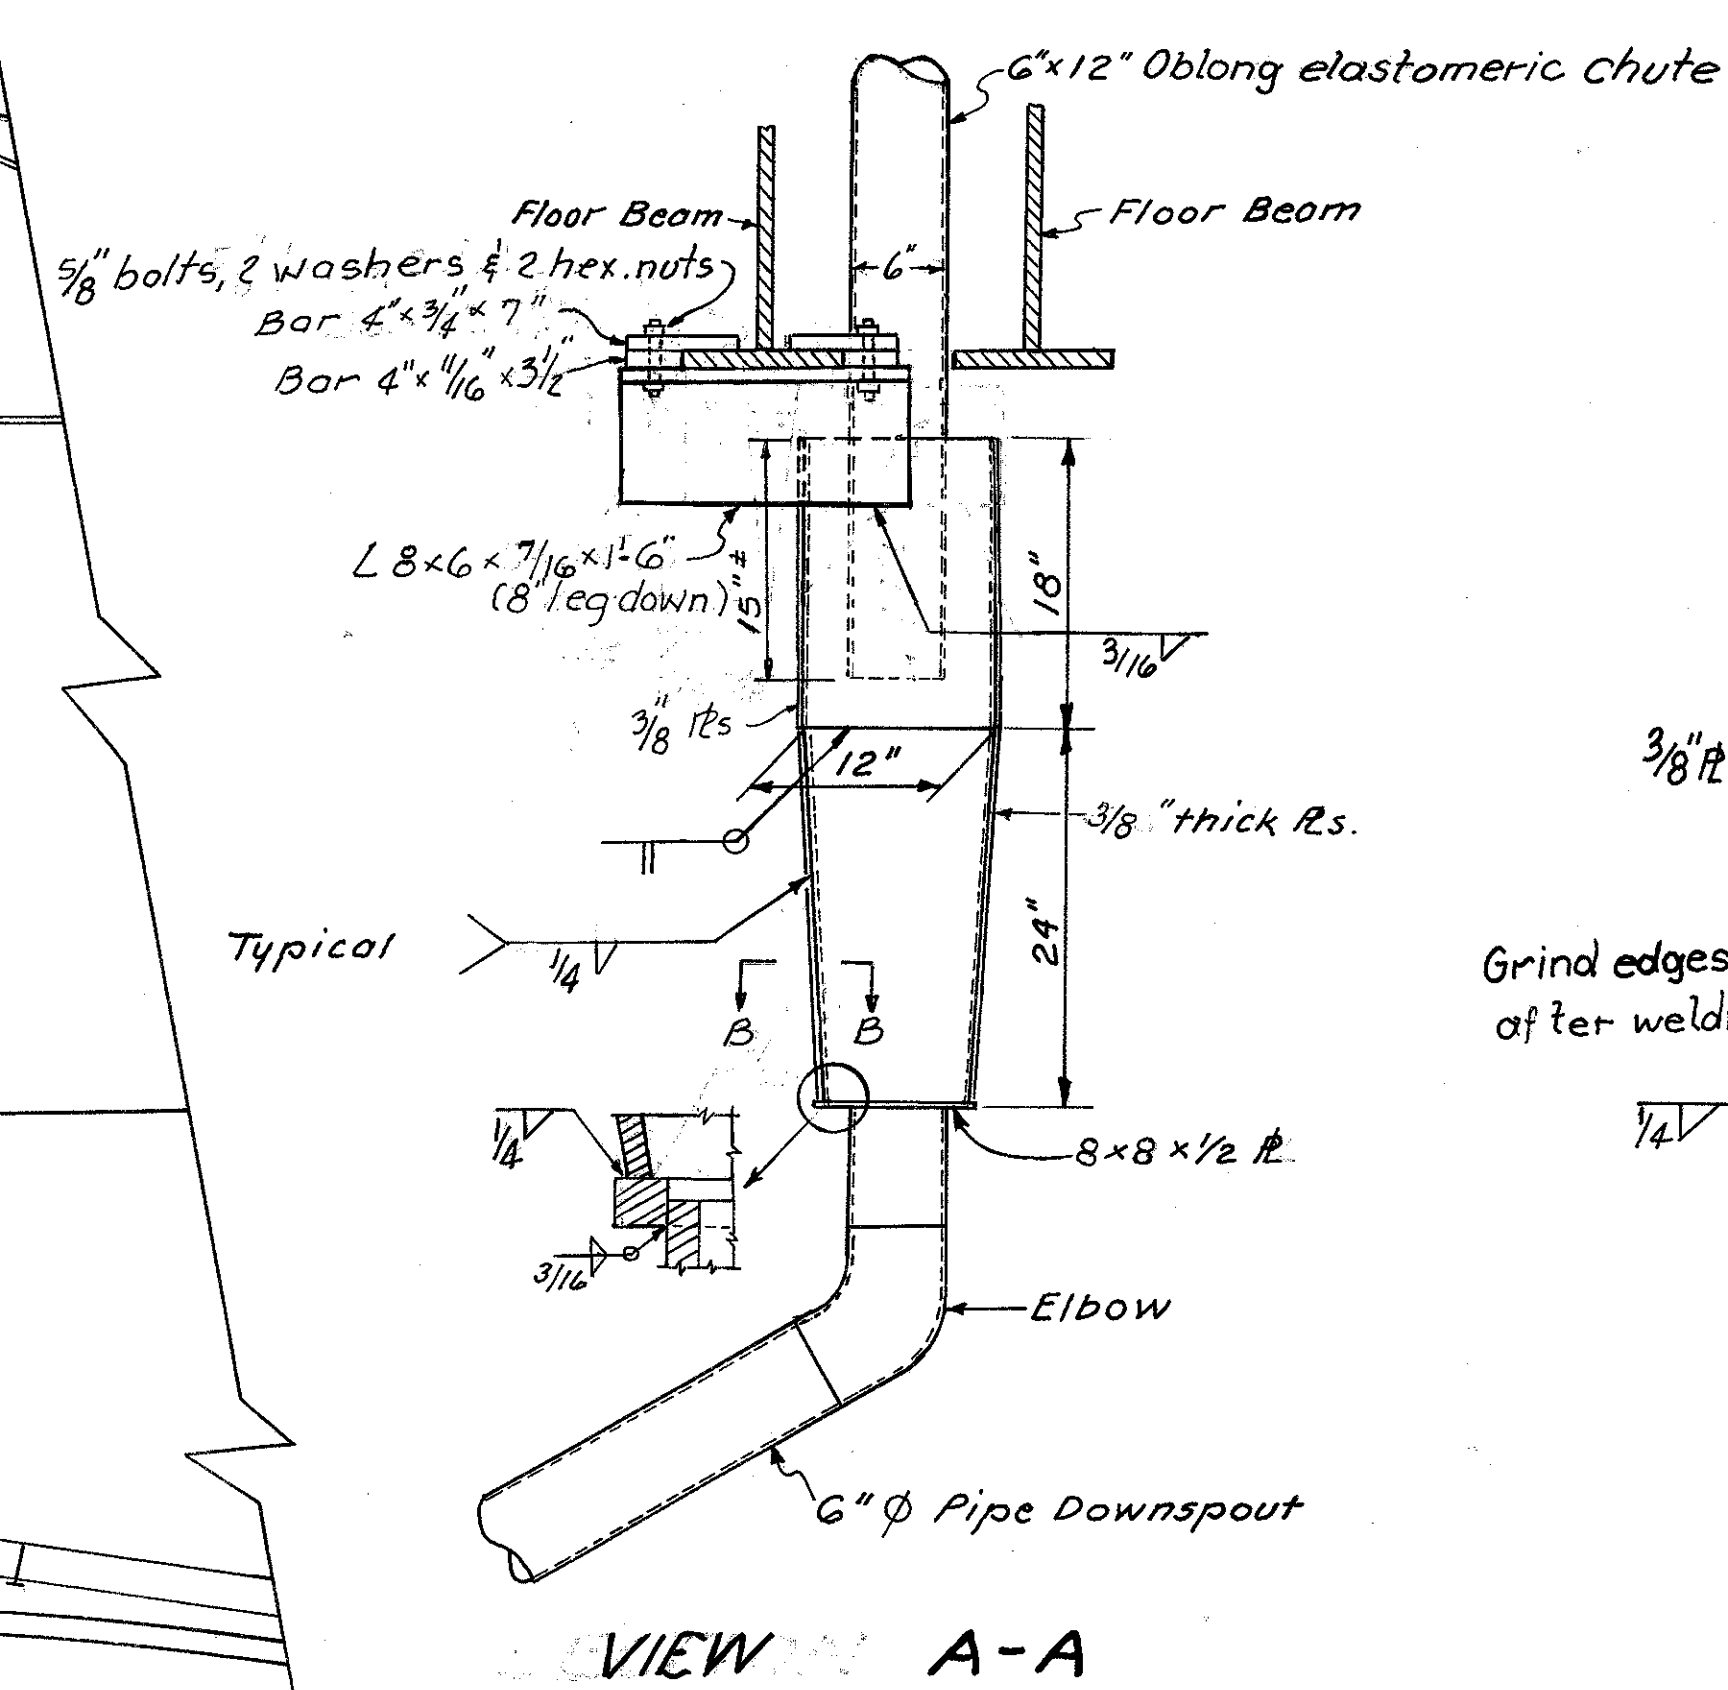 6"×12" Oblong elastomeric chute
Floor Beam
Floor Beam
5/8" bolts, 2 washers & 2 hex. nuts
6"
Bar 4"×3/4"× 7"
Bar 4"× 11/16" ×3 1/2"
L 8×6 × 7/16 ×1'-6"
(8" leg down)
15" ±
18"
3/16
3/8" ℄s
12"
3/8" ℄
3/8" thick ℄s.
Typical
1/4
24"
B B
Grind edges
after weld
1/4
8×8 ×1/2 ℄
1/4
3/16
Elbow
6" ϕ Pipe Downspout
VIEW A-A